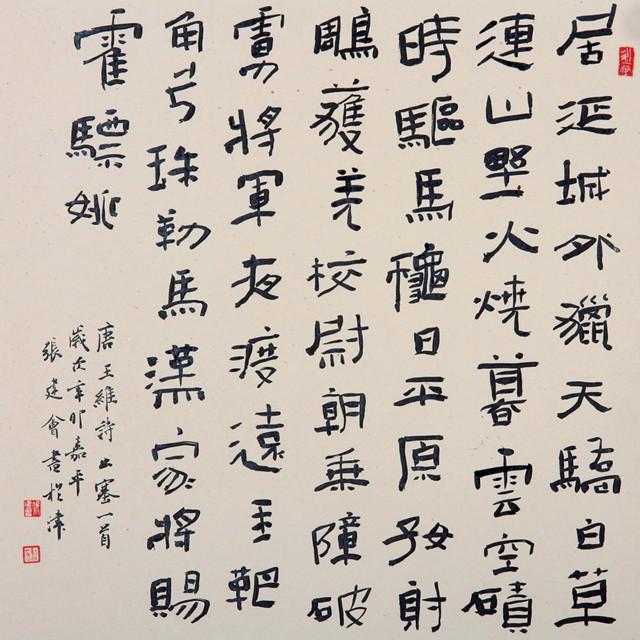 居延城外獵天驕白草
連山野火燒暮雲空磧
時驅馬龝日平原好射
鵰護羌校尉朝乘障破
虜將軍夜渡遼玉靶
角弓珠勒馬漢家將賜
霍驃姚
唐王維詩出塞一首
歲次辛卯嘉平
張建會書於津